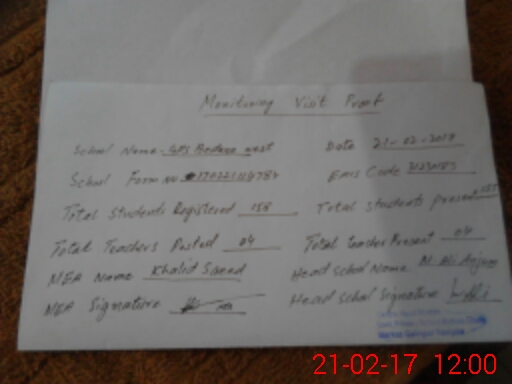 Monitoring Visit Proof
School Name GPS Bedana west Date 21-02-2017
School Form No Emis Code
Total Students Registered 158 Total Students present 155
Total Teachers Posted 04 Total teacher Present 04
MEA Name Khalid Saeed Head School Name M. Ali Anjum
MEA Signature Head School Signature
21-02-17 12:00